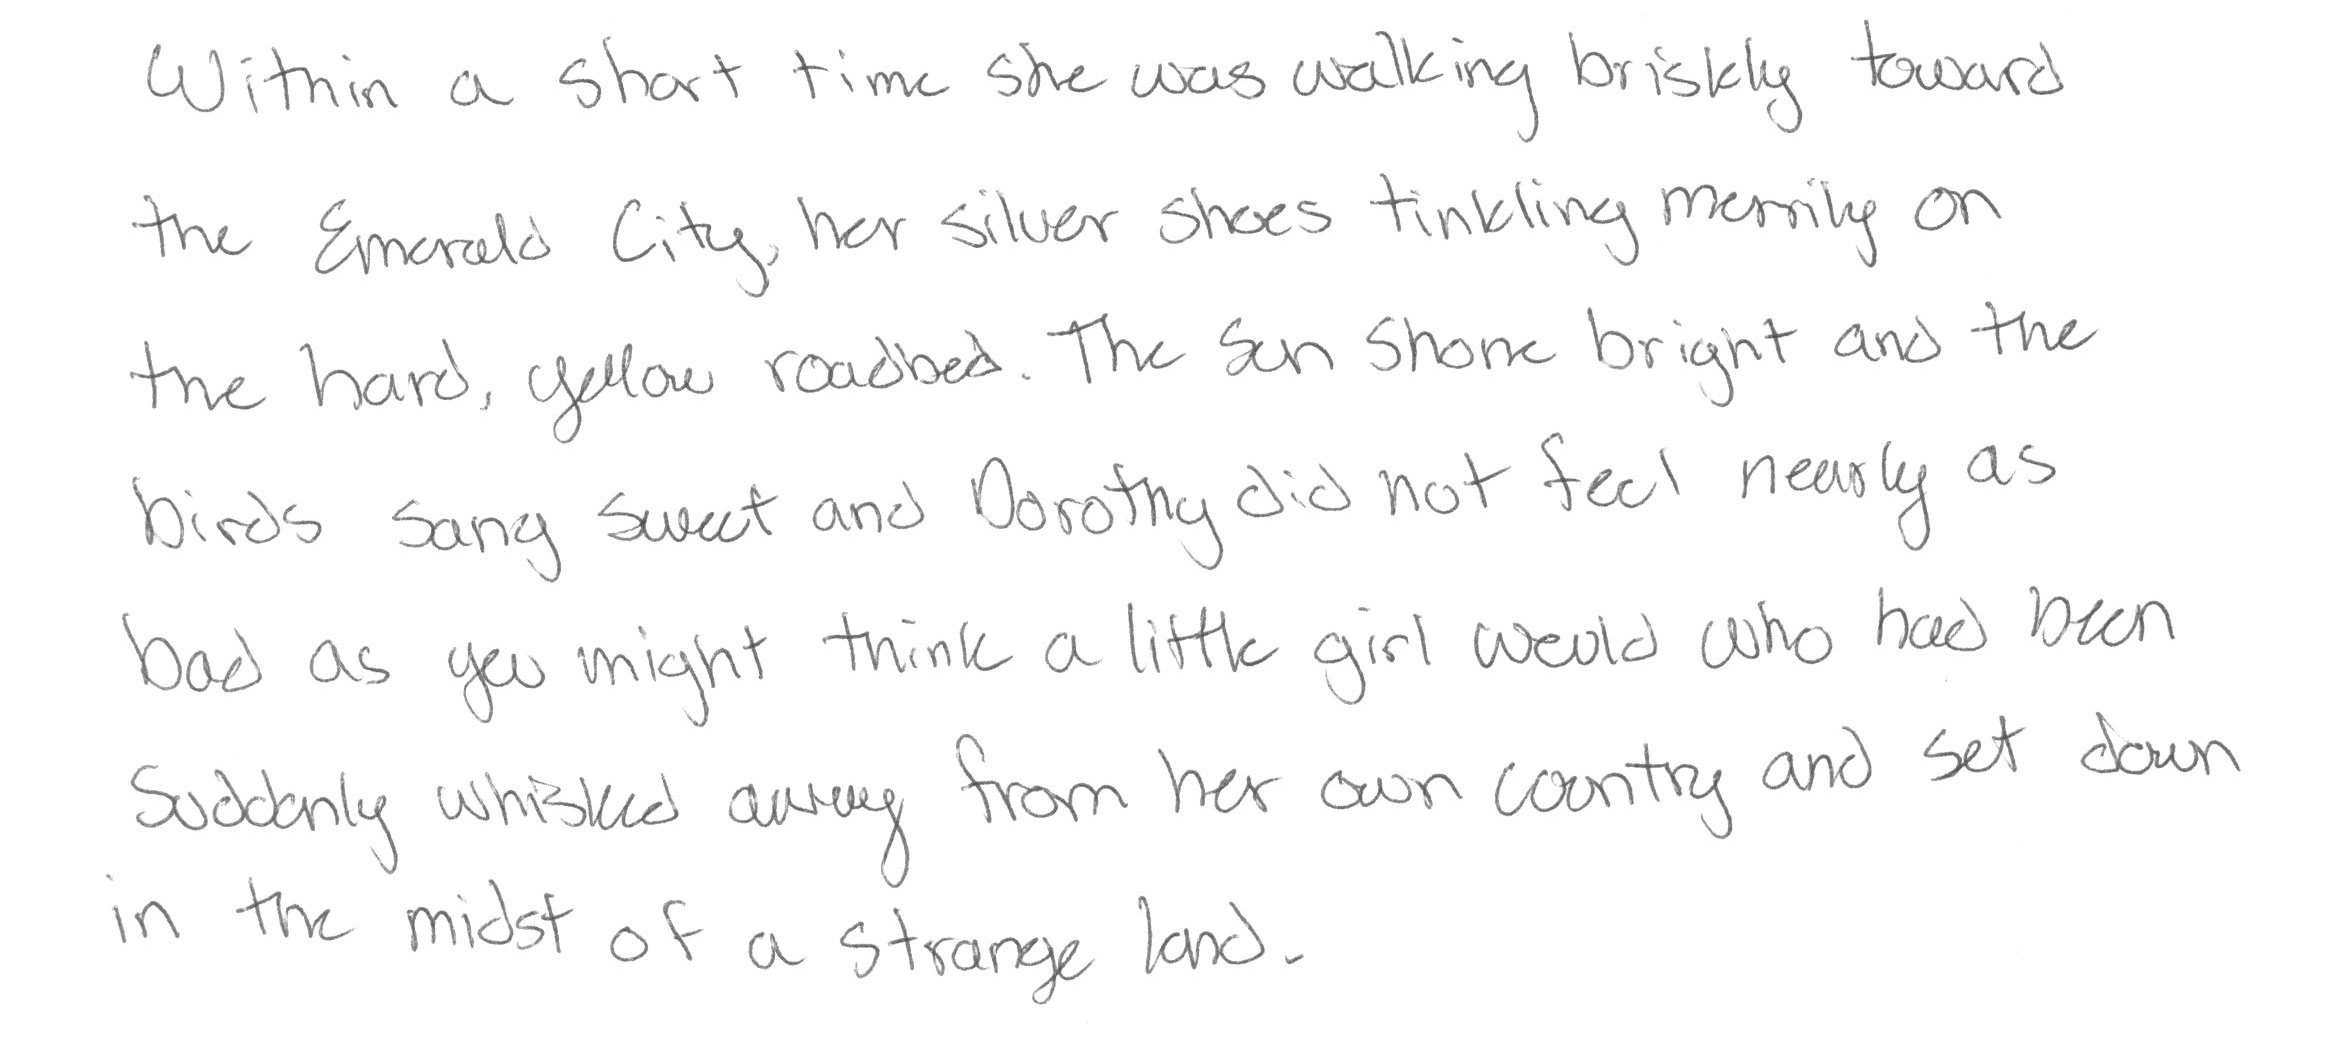 Within a short time she was walking briskly toward
the Emerald City, her silver shoes tinkling merrily on
the hard, yellow roadbed. The sun shone bright and the
birds sang sweet and Dorothy did not feel nearly as
bad as you might think a little girl would who had been
suddenly whisked away from her own country and set down
in the midst of a strange land.